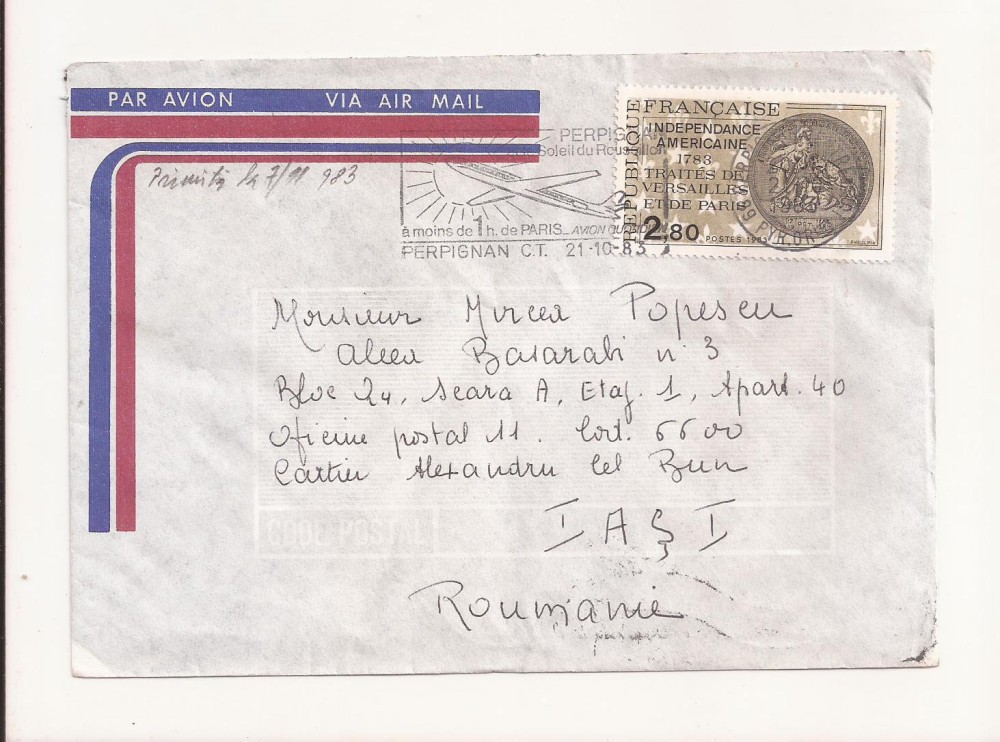 PAR AVION VIA AIR MAIL
Primită la 7/11 983
PERPIGNAN
Soleil du Roussillon
à moins de 1h. de PARIS... AVION QUOTIDIEN
PERPIGNAN C.T. 21-10-83
RÉPUBLIQUE FRANÇAISE
INDÉPENDANCE
AMÉRICAINE
1783
TRAITÉS DE
VERSAILLES
ET DE PARIS
2,80 POSTES 1983
PHILEMA
66 PYR. OR.
Monsieur Mircea Popescu
Aleea Basarabi n° 3
Bloc 24, Scara A, Etaj. 1, Apart. 40
Oficiu postal 11. Cod. 6600
Cartier Alexandru Cel Bun
IAŞI
Roumanie
CODE POSTAL